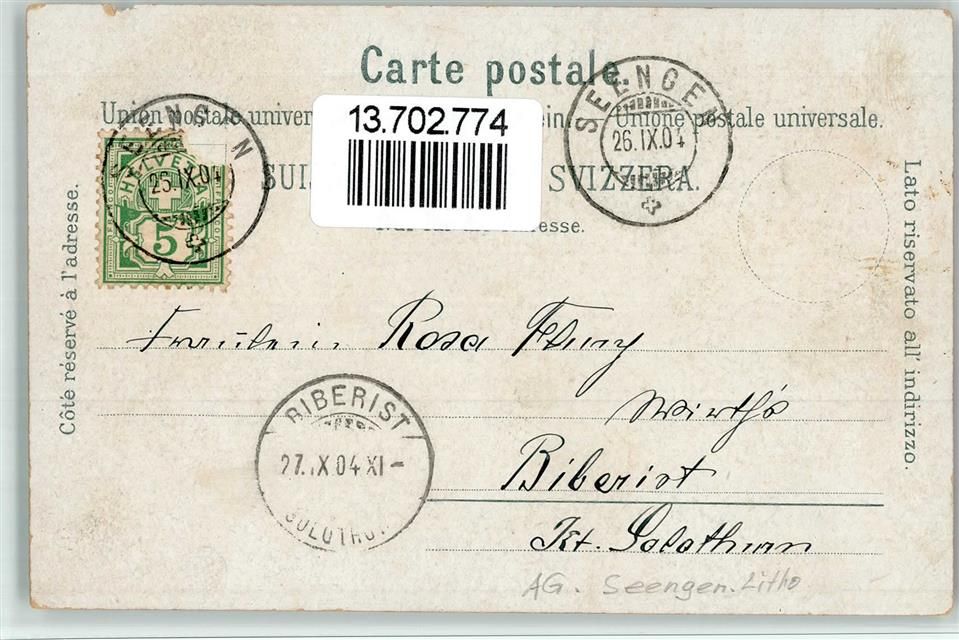 Carte postale.
Union postale univer ein. Unione postale universale.
13.702.774
SVIZZERA.
esse.
Côte réservé à l'adresse.
Lato riservato all' indirizzo.
SEENGEN
26.IX.04
SEENGEN
26.IX.04
HELVETIA
5
Fräulein Rosa Flury
Wirth's
Biberist
Kt. Solothurn
BIBERIST
27.IX.04 XI-
SOLOTHURN
AG. Seengen. Litho